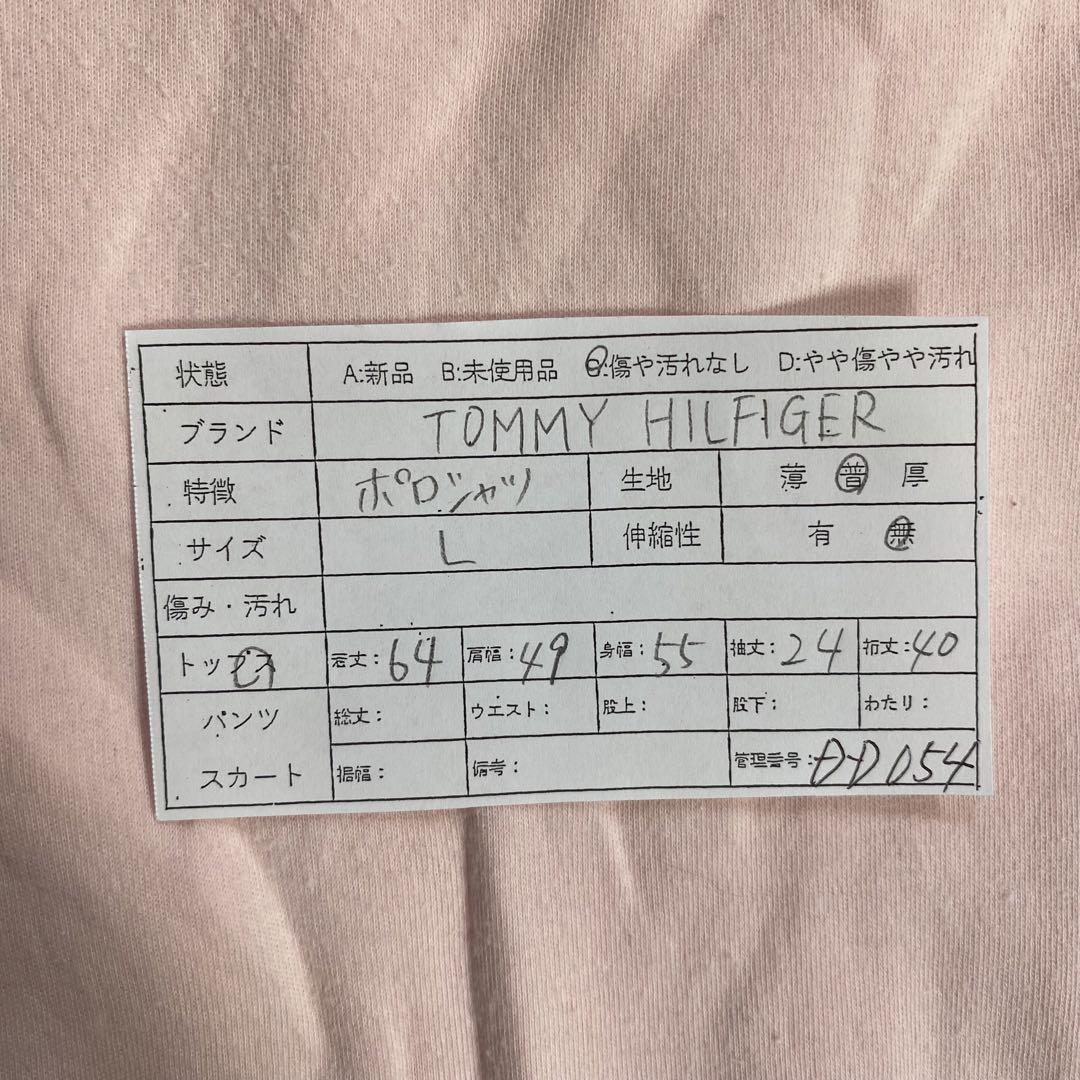 状態 A:新品 B:未使用品 C:傷や汚れなし D:やや傷やや汚れ
ブランド TOMMY HILFIGER
特徴 ポロシャツ 生地 薄 普 厚
サイズ L 伸縮性 有 無
傷み・汚れ
トップス 着丈:64 肩幅:49 身幅:55 袖丈:24 裄丈:40
パンツ 総丈: ウエスト: 股上: 股下: わたり:
スカート 裾幅: 備考: 管理番号:DD054